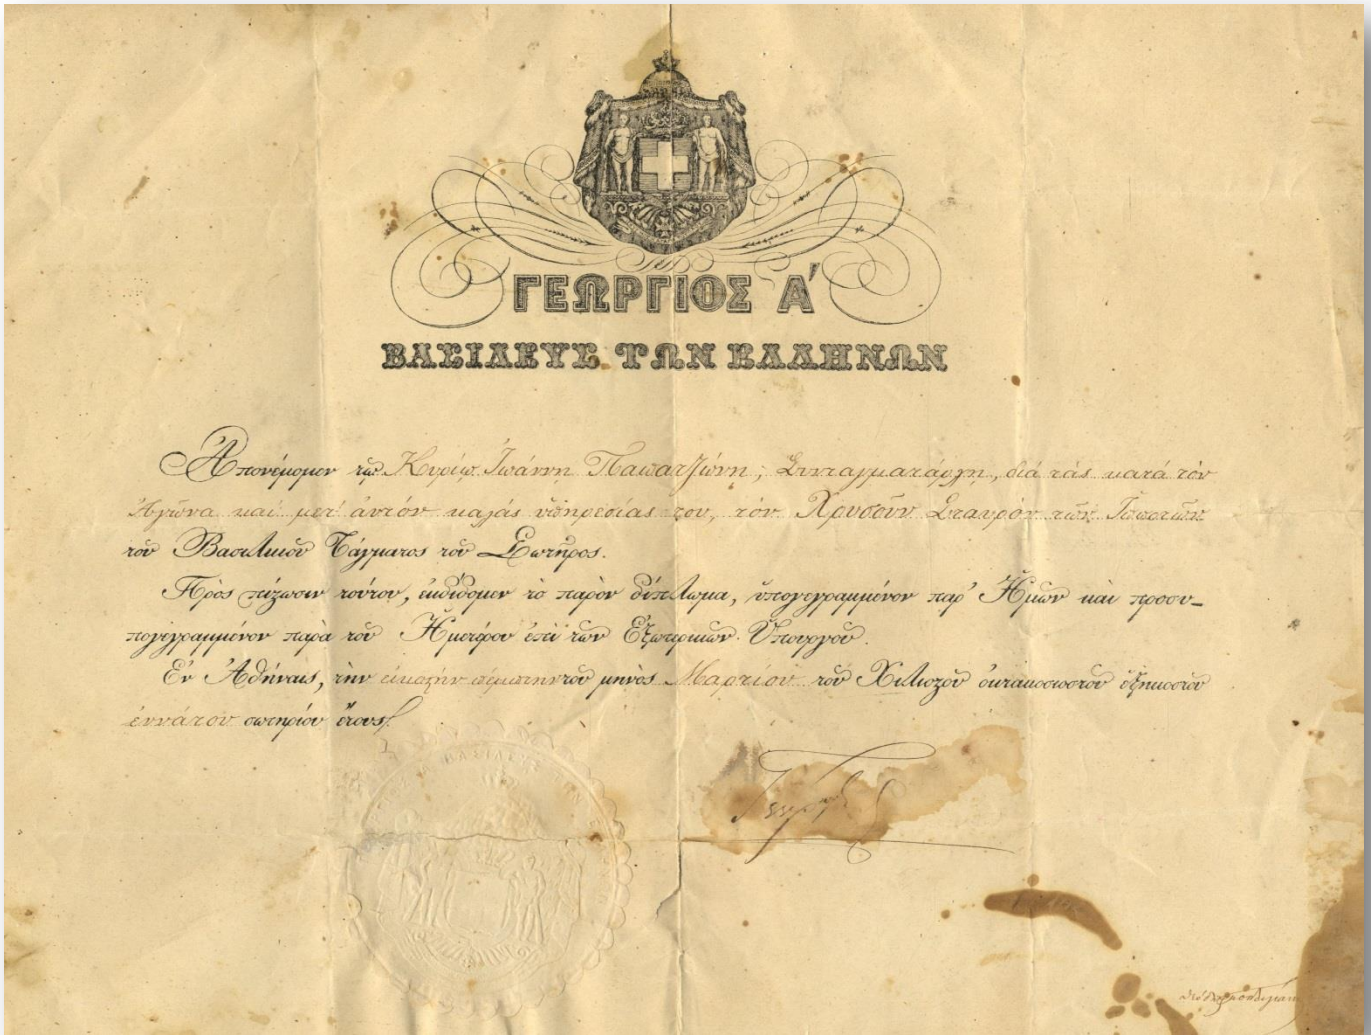 ΓΕΩΡΓΙΟΣ Α΄
ΒΑΣΙΛΕΥΣ ΤΩΝ ΕΛΛΗΝΩΝ
Ἀπονέμομεν τῷ Κυρίῳ Ἰωάννῃ Παπατζώνῃ, Συνταγματάρχῃ, διὰ τὰς κατὰ τὸν
Ἀγῶνα καὶ μετ' αὐτὸν καλάς ὑπηρεσίας του, τὸν Χρυσοῦν Σταυρὸν τῶν Ἱπποτῶν
τοῦ Βασιλικοῦ Τάγματος τοῦ Σωτῆρος.
Πρὸς πίστωσιν τούτου, ἐκδίδομεν τὸ παρὸν δίπλωμα, ὑπογεγραμμένον παρ' Ἡμῶν καὶ προσυ-
πογεγραμμένον παρὰ τοῦ Ἡμετέρου ἐπὶ τῶν Ἐξωτερικῶν Ὑπουργοῦ.
Ἐν Ἀθήναις, τὴν εἰκοστὴν πέμπτην τοῦ μηνὸς Μαρτίου τοῦ Χιλιοστοῦ ὀκτακοσιοστοῦ ἑξηκοστοῦ
ἐννάτου σωτηρίου ἔτους.
Γεώργιος
ΒΑΣΙΛΕΥΣ ΤΩΝ